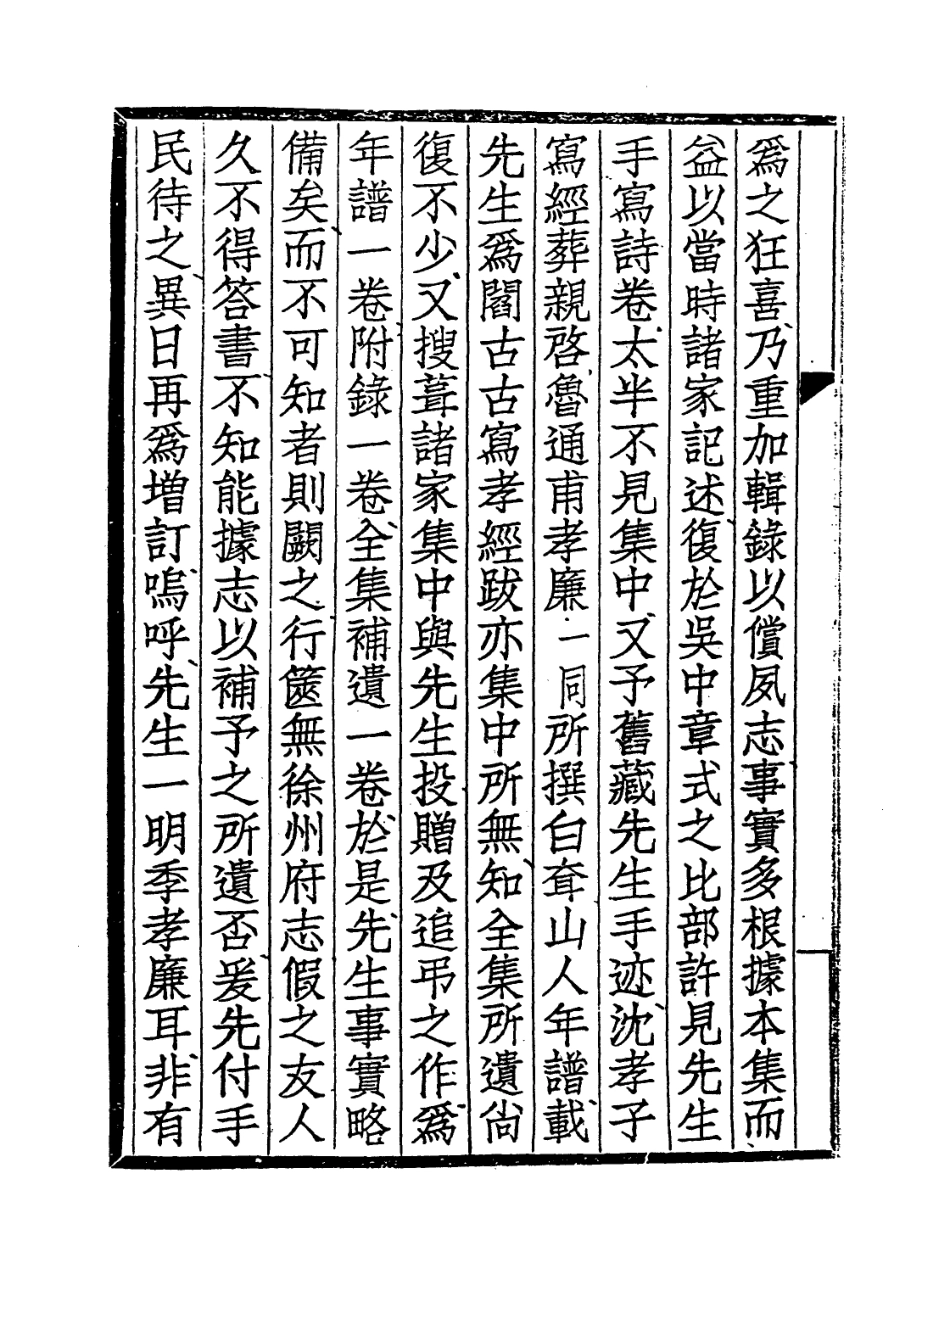 為之狂喜乃重加輯錄以償夙志事實多根據本集而
益以當時諸家記述復於吳中章式之比部許見先生
手寫詩卷太半不見集中又予舊藏先生手迹沈孝子
寫經葬親啓魯通甫孝廉一同所撰白耷山人年譜載
先生為閻古古寫孝經跋亦集中所無知全集所遺尚
復不少又搜葺諸家集中與先生投贈及追弔之作為
年譜一卷附錄一卷全集補遺一卷於是先生事實略
備矣而不可知者則闕之行篋無徐州府志假之友人
久不得答書不知能據志以補予之所遺否爰先付手
民待之異日再為增訂嗚呼先生一明季孝廉耳非有